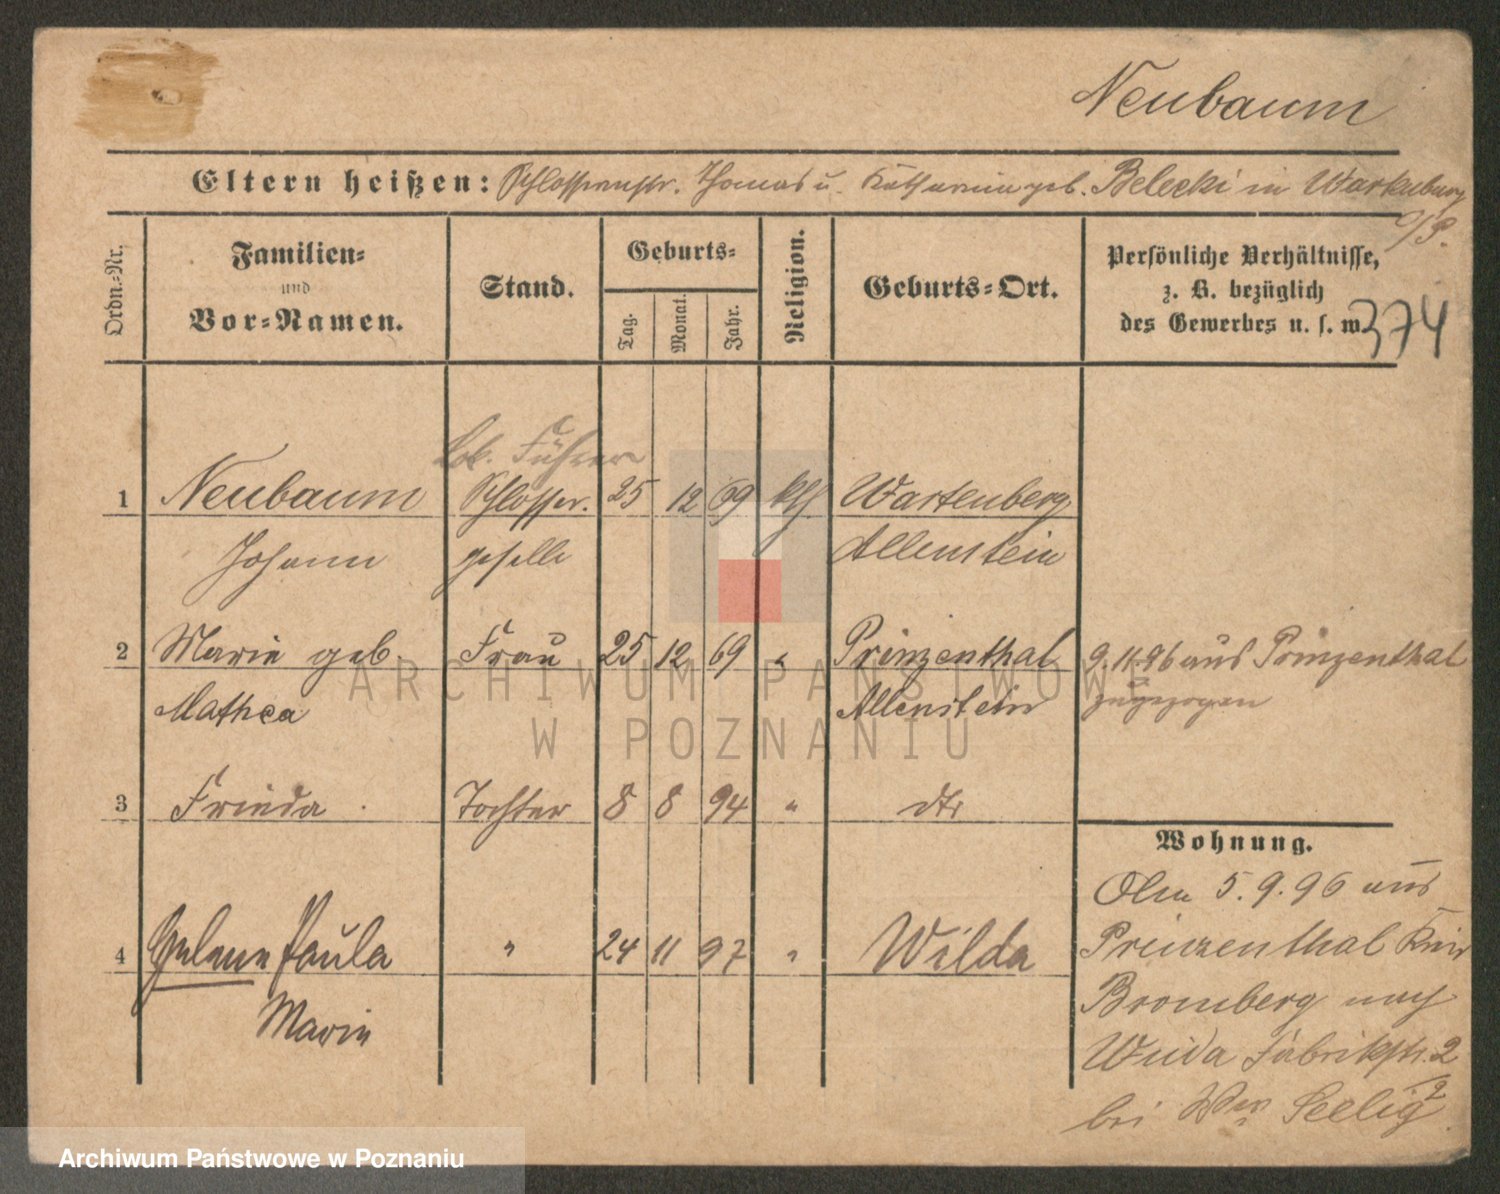 Neubaum
Eltern heißen: Schlossermstr. Thomas u. Katharina geb. Belecki in Wartenburg
O/P.
Ordn.-Nr.
Familien-
und
Vor-Namen.
Stand.
Geburts-
Tag.
Monat.
Jahr.
Religion.
Geburts-Ort.
Persönliche Verhältnisse,
z. B. bezüglich
des Gewerbes u. s. w.
374
Lok. Führer
1 Neubaum Schlosser. 25 12 69 kth. Wartenberg
Johann geselle Allenstein
2 Marie geb. Frau 25 12 69 " Prinzenthal 9.11.96 aus Prinzenthal
Mathea Allenstein zugezogen
3 Frieda Tochter 8 8 94 " dto
Wohnung.
5.9.96 aus
4 Helene Paula " 24 11 97 " Wilda
Marie
Prinzenthal Kreis
Bromberg nach
Wilda Fabrikstr. 2
bei Wwe Seelig
ARCHIWUM PAŃSTWOWE
W POZNANIU
Archiwum Państwowe w Poznaniu